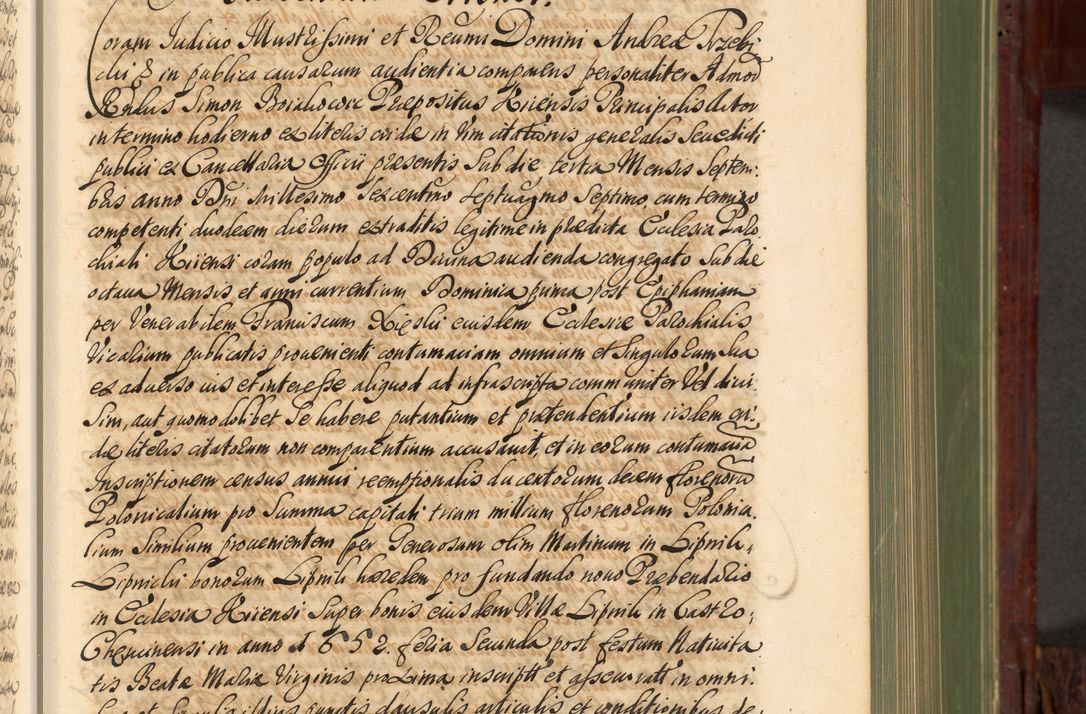 Coram Judicio Illustrissimi et Reumi Domini Andreæ Trzebi¬
cki & in publica causarum audientia comparens personaliter Admod
Rndus Simon Prepositus Kiiensis Principalis Actor
in termino hodierno ex literis eiusde in vim citationis generalis seu edicti
publici ex Cancellaria Officii presentis sub die tertia Mensis Septem¬
bris anno Dni Millesimo sexcentmo septuagmo septimo cum termino
competenti duodecem dierum extraditis legitime in prædicta Ecclesia Paro¬
chiali Kiiensi coram populo ad Diuina audienda congregato sub die
octaua Mensis et anni currentium Dominica prima post Epiphaniam
per Venerabilem Franciscum eiusdem Ecclesiæ Parochialis
Vicarium publicatis prouenienti contumaciam omnium et singulorum sua
ex aduerso ius et interesse aliquod ad infrascripta communiter vel diui¬
sim, aut quomodolibet se habere putantium et prætendentium iisdem eis¬
de literis citatorum non comparentium accusauit, et in eorum contumacia
Inscriptionem census annui reemptionalis ducentorum decem florenoru
Polonicalium pro Summa capitali trium millium florenorum Polonica¬
lium similium prouenientem per Generosum olim Martinum in Lipnik,
Lipnicki bonorum Lipnik hæredem pro fundando nouo Præbendario
in Ecclesia Kiiensi super bonis eiusdem Villæ Lipnik in Castro,
Checinensi in anno 1652. feria secunda post festum Natiuita
tis Beatæ Mariæ Virginis proxima inscriptt et assecuratt in omni¬
bus et singulis illius punctis clausulis articulis et conditionibus de¬